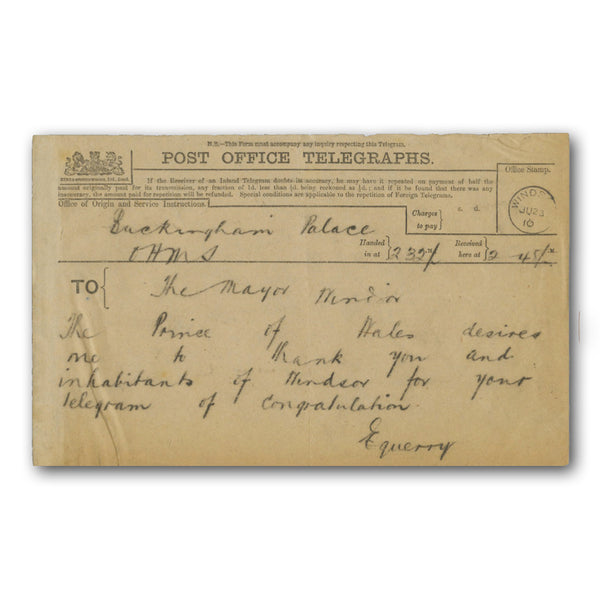 N.B.—This Form must accompany any inquiry respecting this Telegram.
POST OFFICE TELEGRAPHS.
If the Receiver of an Inland Telegram doubts its accuracy, he may have it repeated on payment of half the
amount originally paid for its transmission, any fraction of 1d. less than ½d. being reckoned as ½d.; and if it be found that there was any
inaccuracy, the amount paid for repetition will be refunded. Special conditions are applicable to the repetition of Foreign Telegrams.
Office Stamp.
WINDS
JU 23
10
Office of Origin and Service Instructions.
Charges to pay
s. d.
Buckingham Palace
OHMS
Handed in at
2 32
Received here at
2 45
TO
The Mayor Windsor
The Prince of Wales desires
me to thank you and
inhabitants of Windsor for your
telegram of congratulation.
Equerry